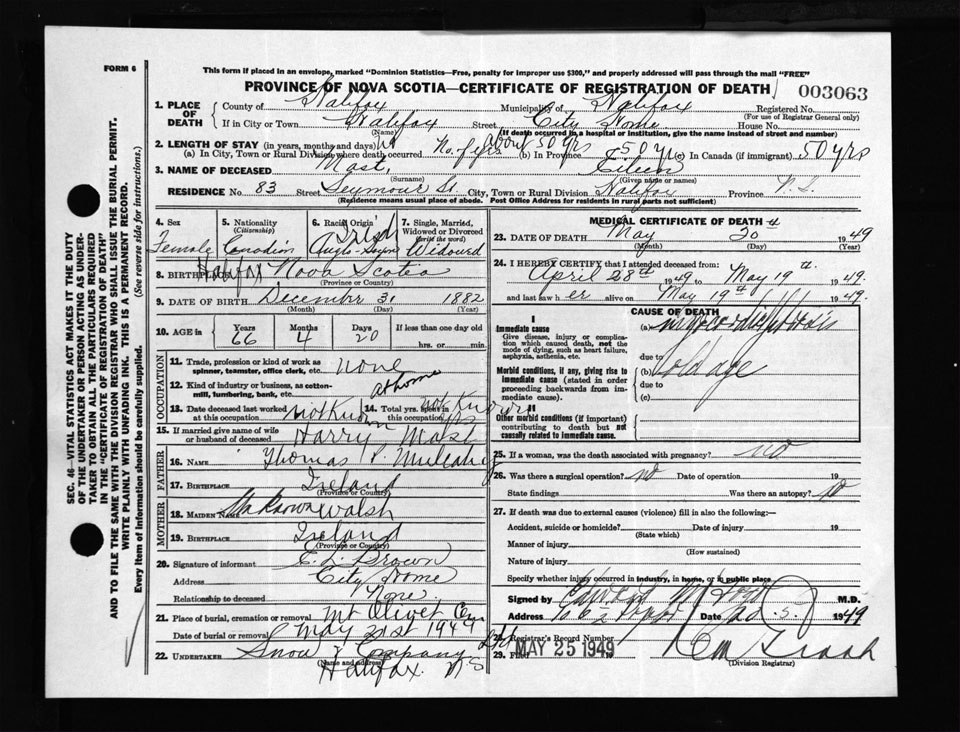 FORM 6
This form if placed in an envelope, marked "Dominion Statistics—Free, penalty for improper use $300," and properly addressed will pass through the mail "FREE"
PROVINCE OF NOVA SCOTIA—CERTIFICATE OF REGISTRATION OF DEATH
003063
1. PLACE OF DEATH
County of Halifax Municipality of Halifax Registered No.
(For use of Registrar General only)
If in City or Town Halifax Street City Home House No.
(Name) (If death occurred in a hospital or institution, give the name instead of street and number)
2. LENGTH OF STAY (in years, months and days)
(a) In City, Town or Rural Division where death occurred No. of yrs about 50 yrs (b) In Province 50 yr (c) In Canada (if immigrant) 50 yrs
3. NAME OF DECEASED Mast, Eileen
(Surname) (Given name or names)
RESIDENCE No. 83 Street Seymour St. City, Town or Rural Division Halifax Province N.S.
(Residence means usual place of abode. Post Office Address for residents in rural parts not sufficient)
4. Sex
Female
5. Nationality
(Citizenship)
Canadian
6. Racial Origin
Irish
Anglo-Saxon
7. Single, Married, Widowed or Divorced
(write the word)
Widowed
8. BIRTHPLACE Halifax Nova Scotia
(Province or Country)
9. DATE OF BIRTH December 31 1882
(Month) (Day) (Year)
10. AGE in Years Months Days If less than one day old
66 4 20 hrs. or min.
OCCUPATION
11. Trade, profession or kind of work as spinner, teamster, office clerk, etc. none
12. Kind of industry or business, as cotton-mill, lumbering, bank, etc. at home
13. Date deceased last worked at this occupation not known
14. Total yrs. spent in this occupation not known yrs
15. If married give name of wife or husband of deceased Harry Mast
FATHER
16. NAME Thomas P. Mulcahy
17. BIRTHPLACE Ireland
(Province or Country)
MOTHER
18. MAIDEN NAME Unknown Walsh
19. BIRTHPLACE Ireland
(Province or Country)
20. Signature of informant E. L. Brown
Address City Home
Relationship to deceased None.
21. Place of burial, cremation or removal Mt Olivet Cem
Date of burial or removal May 21st 1949
22. UNDERTAKER Snow & Company Ltd
(Name and address) Halifax. N S
MEDICAL CERTIFICATE OF DEATH
23. DATE OF DEATH May 20th 1949
(Month) (Day) (Year)
24. I HEREBY CERTIFY that I attended deceased from:
April 28th 1949 to May 19th 1949.
and last saw her alive on May 19th 1949.
CAUSE OF DEATH
I
Immediate cause
Give disease, injury or complication which caused death, not the mode of dying, such as heart failure, asphyxia, asthenia, etc.
(a)
due to
Morbid conditions, if any, giving rise to immediate cause (stated in order proceeding backwards from immediate cause).
(b) old age
due to
(c)
II
Other morbid conditions (if important) contributing to death but not causally related to immediate cause.
25. If a woman, was the death associated with pregnancy? no
26. Was there a surgical operation? no Date of operation 19
State findings Was there an autopsy? no
27. If death was due to external causes (violence) fill in also the following:—
Accident, suicide or homicide? Date of injury 19
(State which)
Manner of injury
(How sustained)
Nature of injury
Specify whether injury occurred in industry, in home, or in public place
Signed by M.D.
Address Date 1949
28. Registrar's Record Number
29. Filed MAY 25 1949
(Division Registrar)
SEC. 46—VITAL STATISTICS ACT MAKES IT THE DUTY OF THE UNDERTAKER OR PERSON ACTING AS UNDERTAKER TO OBTAIN ALL THE PARTICULARS REQUIRED IN THE "CERTIFICATE OF REGISTRATION OF DEATH" AND TO FILE THE SAME WITH THE DIVISION REGISTRAR WHO SHALL ISSUE THE BURIAL PERMIT.
WRITE PLAINLY WITH UNFADING INK. THIS IS A PERMANENT RECORD.
Every item of information should be carefully supplied. (See reverse side for instructions.)